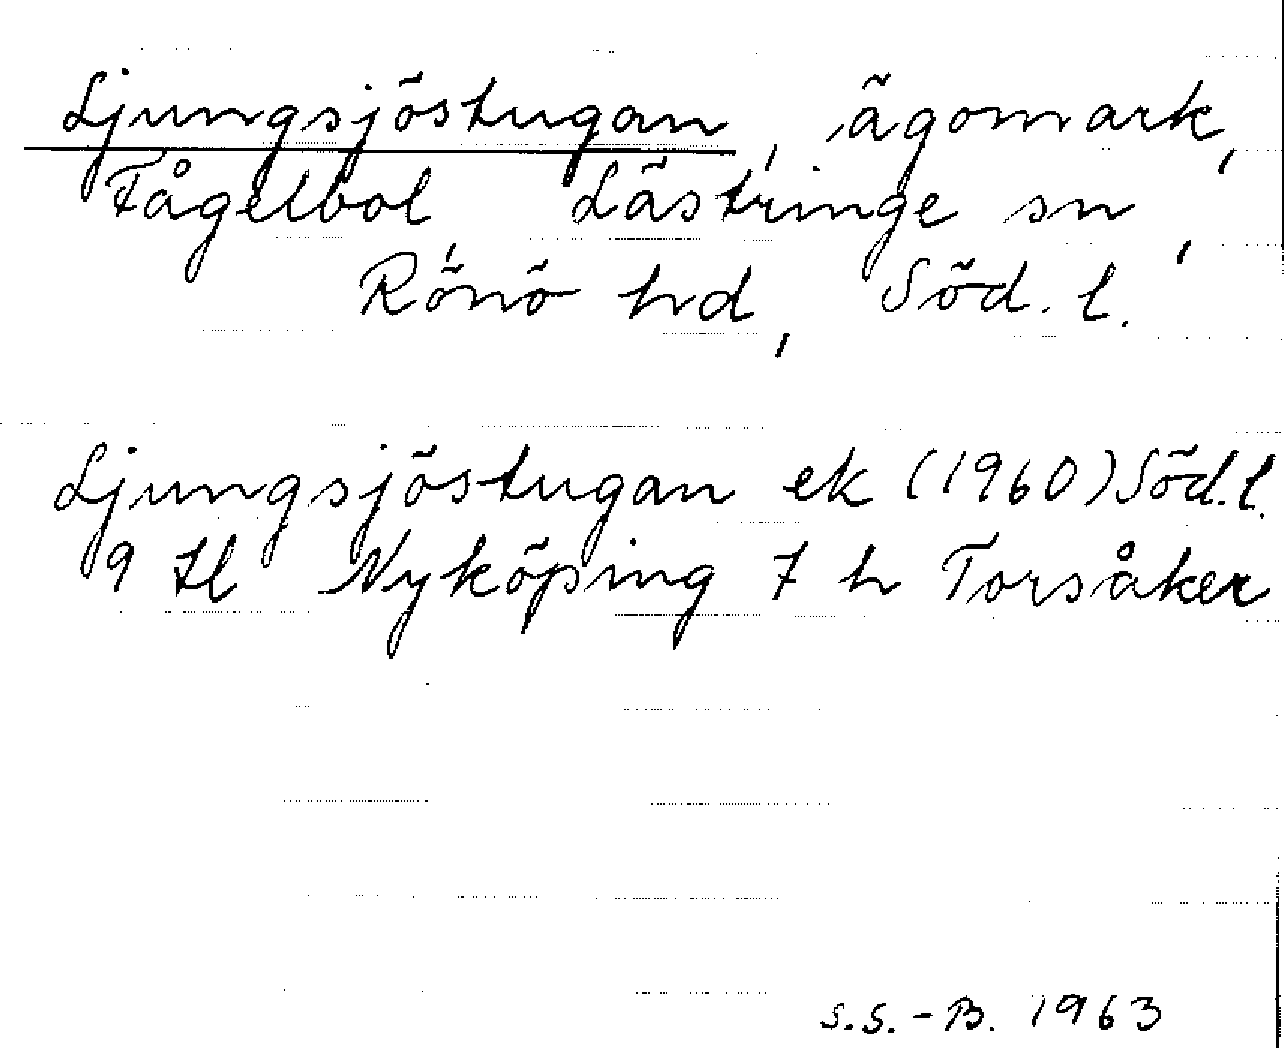 Ljungsjöstugan, ägomark,
Fågelbol, Lästringe sn,
Rönö hd, Söd. l.
Ljungsjöstugan ek (1960) Söd. l.
9 H Nyköping 7 h Torsåker
S.S.-B. 1963